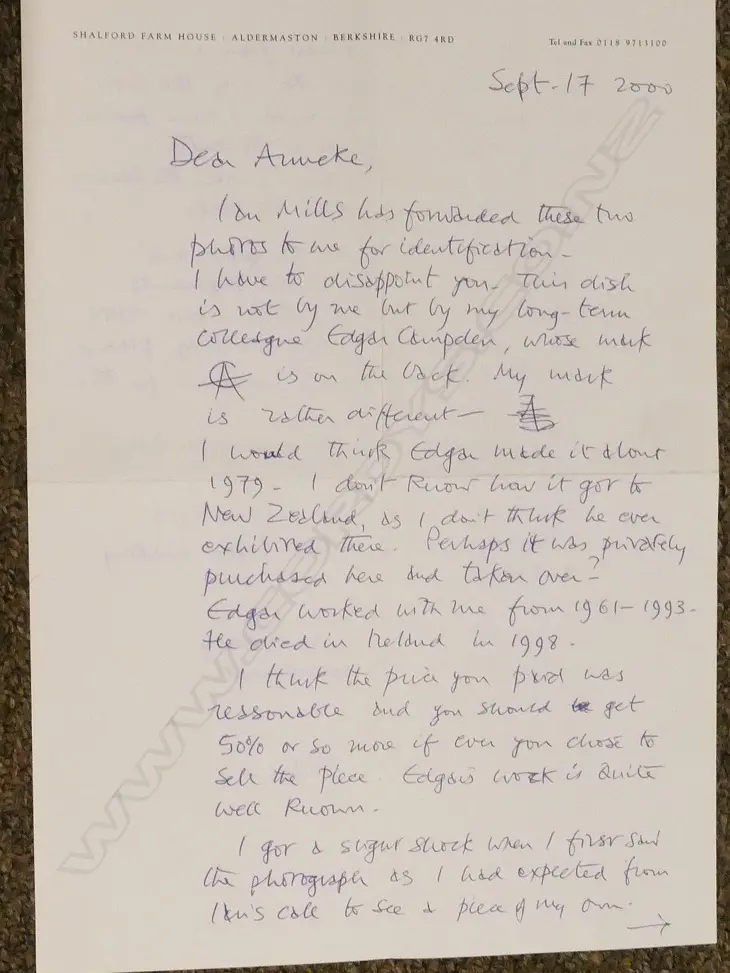 SHALFORD FARM HOUSE | ALDERMASTON | BERKSHIRE | RG7 4RD
Tel and Fax 0118 9713100
Sept. 17 2000
Dear Anneke,
Ian Mills has forwarded these two
photos to me for identification.
I have to disappoint you. This dish
is not by me but by my long-term
colleague Edgar Campden, whose mark
is on the back. My mark
is rather different —
I would think Edgar made it about
1979. I don't know how it got to
New Zealand, as I don't think he ever
exhibited there. Perhaps it was privately
purchased here and taken over?
Edgar worked with me from 1961–1993.
He died in Ireland in 1998.
I think the price you paid was
reasonable and you should get
50% or so more if ever you chose to
sell the piece. Edgar's work is quite
well known.
I got a slight shock when I first saw
the photograph as I had expected from
Ian's call to see a piece of my own.
→